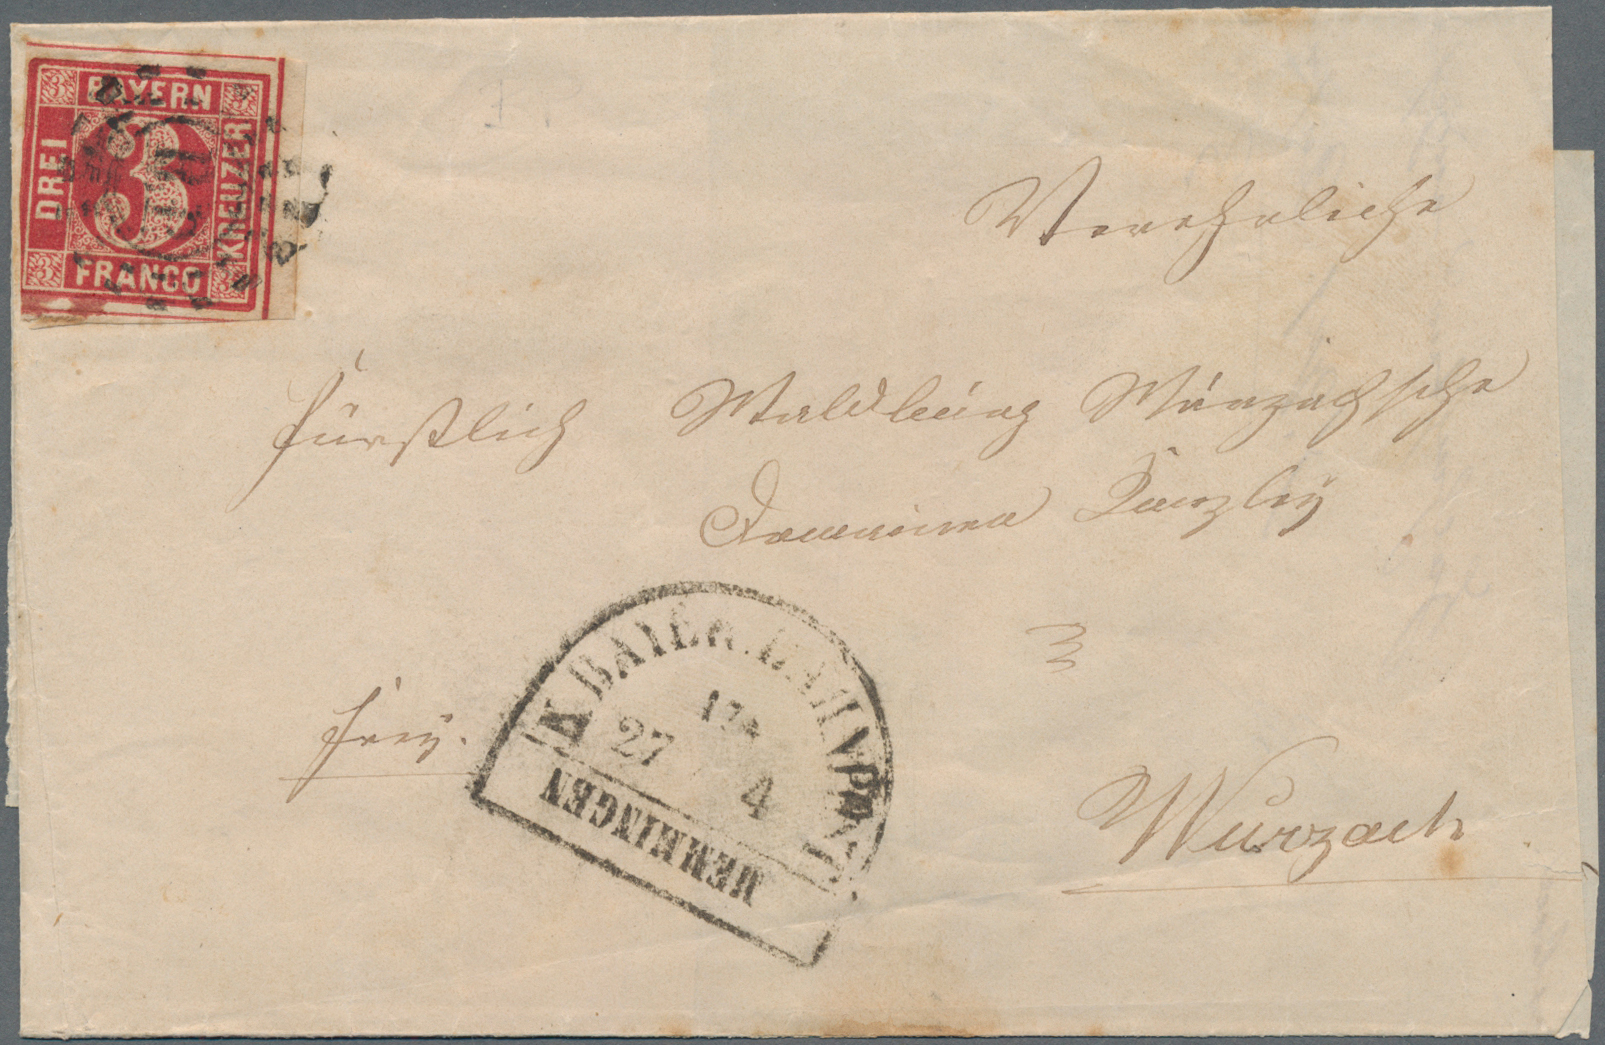 BAYERN
DREI
KREUZER
FRANCO
3
Verehrliche
fürstlich Waldburg Wurzach'sche
Domainen Kanzley
frey.
K. BAYER. BAHNPOST
27 4
MEMMINGEN
Wurzach